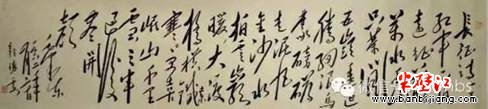 长征诗
红军不怕
远征难
万水千山
只等闲
五岭逶迤
腾细浪乌
蒙磅礴
走泥丸
金沙水
拍云崖
暖大渡
桥横铁索
寒更喜
岷山千里
雪三军
过后
尽开
颜
毛泽东
半壁江
www.banbijiang.com